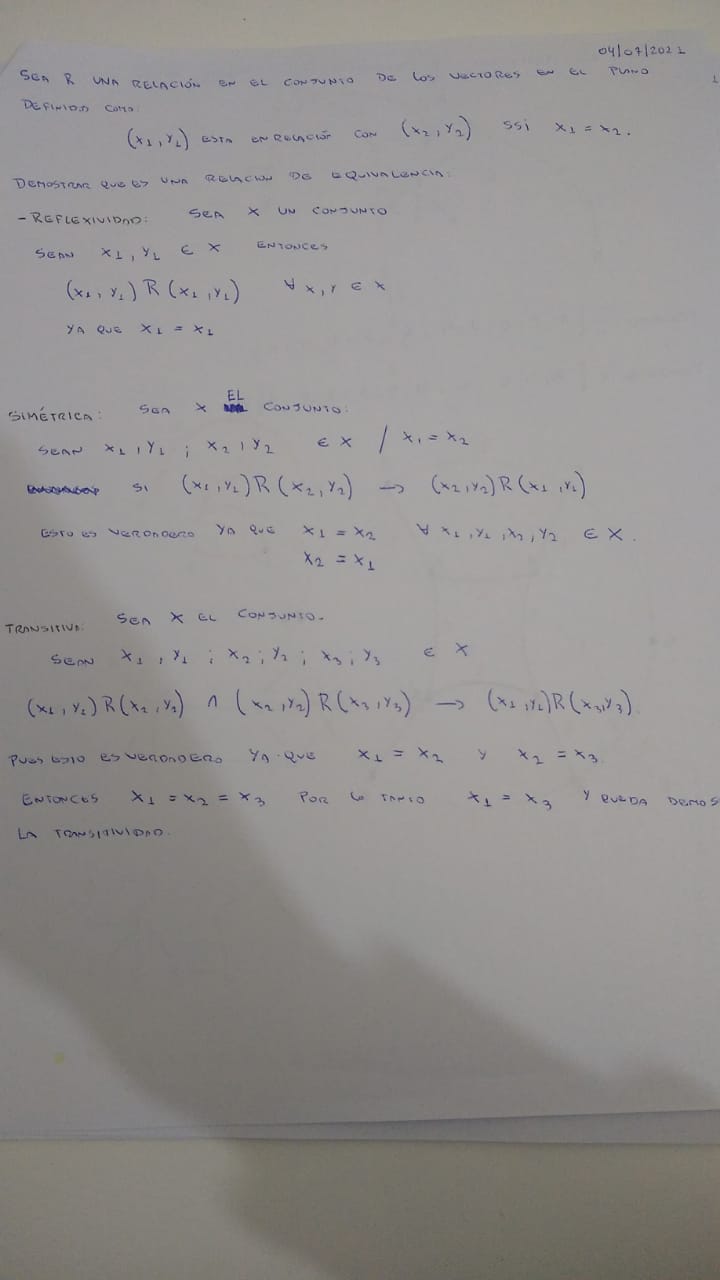 04/07/2021
SEA R UNA RELACIÓN EN EL CONJUNTO DE LOS VECTORES EN EL PLANO
DEFINIDO COMO:
(x₁, y₁) ESTA EN RELACIÓN CON (x₂, y₂) SSi x₁ = x₂.
DEMOSTRAR QUE ES UNA RELACION DE EQUIVALENCIA:
- REFLEXIVIDAD: SEA X UN CONJUNTO
SEAN x₁, y₁ ∈ X ENTONCES
(x₁, y₁) R (x₁, y₁) ∀ x, y ∈ X
YA QUE x₁ = x₁
SIMÉTRICA: SEA X EL CONJUNTO:
SEAN x₁, y₁ ; x₂, y₂ ∈ X / x₁ = x₂
SI (x₁, y₁) R (x₂, y₂) → (x₂, y₂) R (x₁, y₁)
ESTO ES VERDADERO YA QUE x₁ = x₂ ∀ x₁, y₁, x₂, y₂ ∈ X.
x₂ = x₁
TRANSITIVA: SEA X EL CONJUNTO.
SEAN x₁, y₁ ; x₂ ; y₂ ; x₃ ; y₃ ∈ X
(x₁, y₁) R (x₂, y₂) ∧ (x₂, y₂) R (x₃, y₃) → (x₁, y₁) R (x₃, y₃)
PUES ESTO ES VERDADERO YA QUE x₁ = x₂ y x₂ = x₃
ENTONCES x₁ = x₂ = x₃ POR LO TANTO x₁ = x₃ Y QUEDA DEMOS
LA TRANSITIVIDAD.